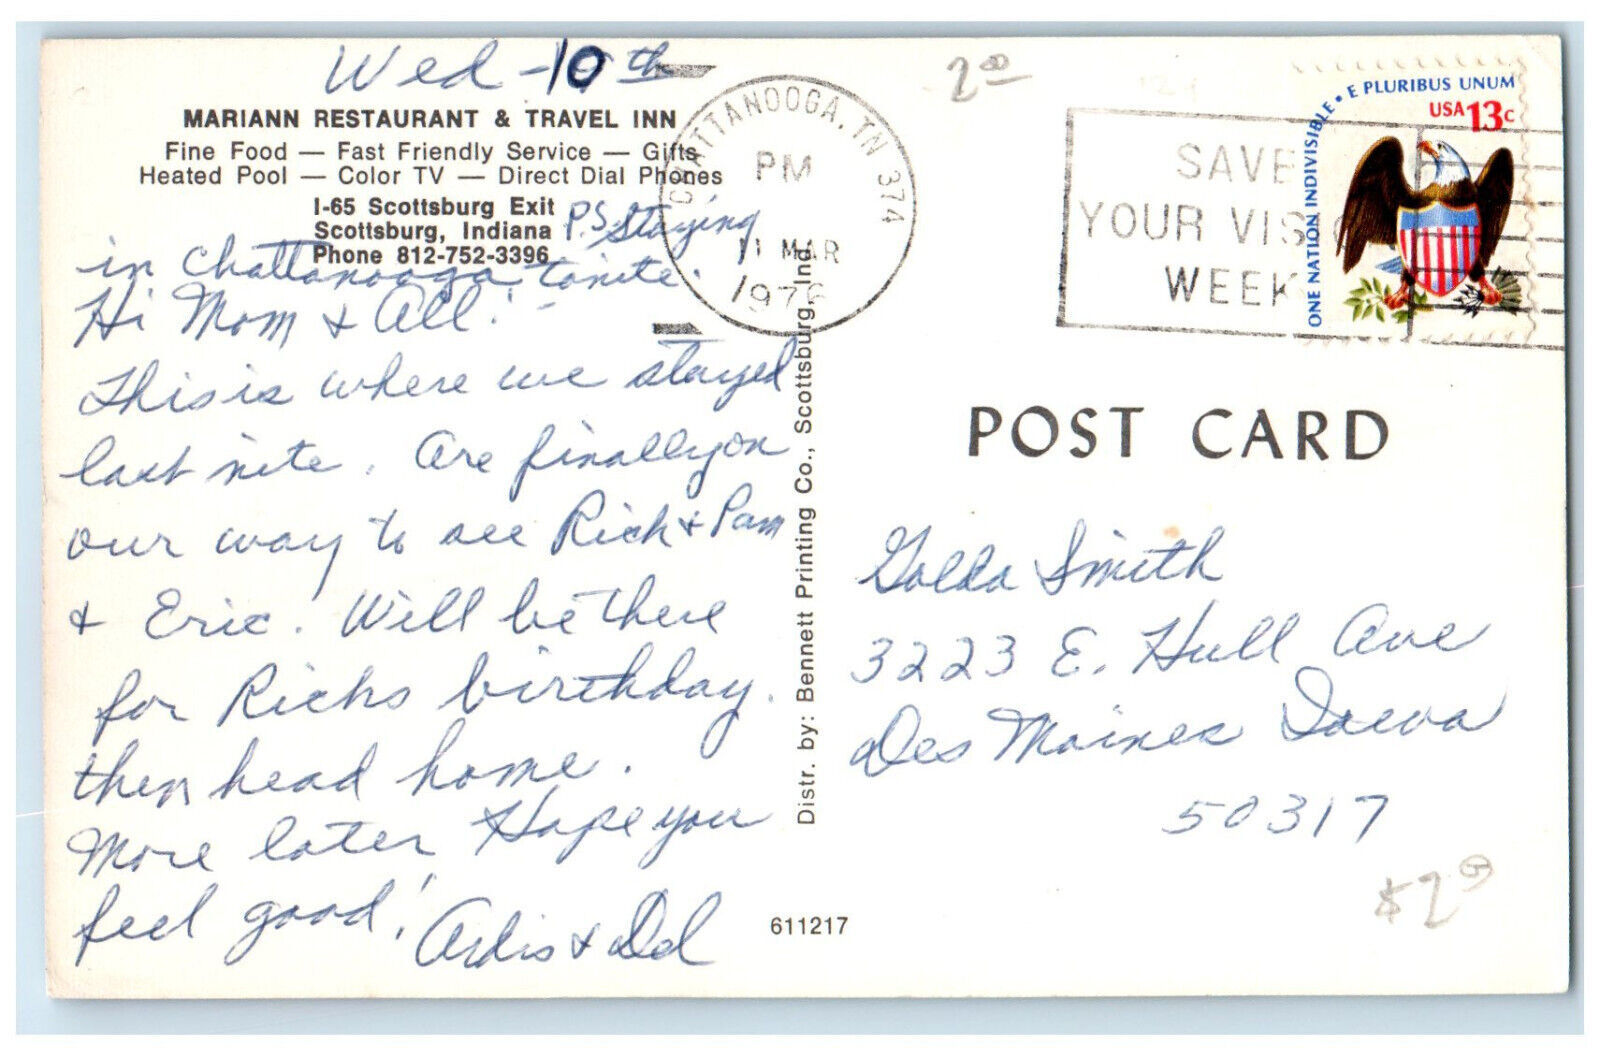 Wed - 10th
MARIANN RESTAURANT & TRAVEL INN
Fine Food — Fast Friendly Service — Gifts
Heated Pool — Color TV — Direct Dial Phones
I-65 Scottsburg Exit
Scottsburg, Indiana
Phone 812-752-3396
P.S. Staying
in Chattanooga tonite.
Hi Mom & All!
This is where we stayed
last nite. Are finally on
our way to see Rich & Pam
& Eric. Will be there
for Richs birthday.
then head home.
More later, Hope you
feel good!
Ardis & Del
Distr. by: Bennett Printing Co., Scottsburg, Ind.
611217
CHATTANOOGA, TN 374
PM
11 MAR
1976
2.00
SAVE
YOUR VIS
WEEK
ONE NATION INDIVISIBLE • E PLURIBUS UNUM
USA 13c
POST CARD
Golda Smith
3223 E. Hull Ave
Des Moines Iowa
50317
$2.00